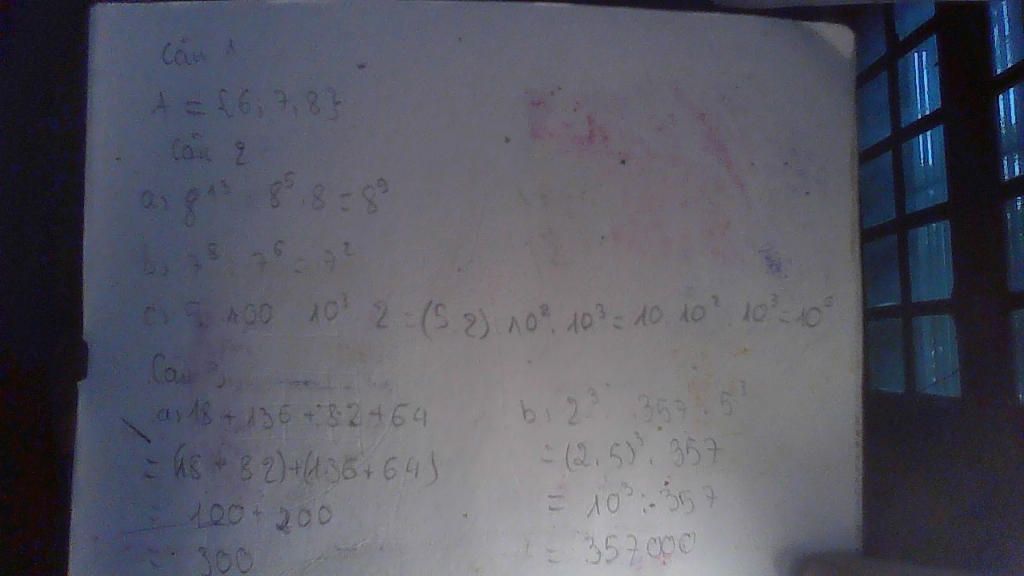 Câu 1
A = {6; 7; 8}
Câu 2
a, 8¹³ : 8⁵ . 8 = 8⁹
b, 7⁸ : 7⁶ = 7²
c, 5 . 100 . 10³ . 2 = (5.2) 10² . 10³ = 10 10² . 10³ = 10⁶
Câu 3,
a, 18 + 136 + 82 + 64
= (18 + 82) + (136 + 64)
= 100 + 200
= 300
b, 2³ . 357 . 5³
= (2.5)³ . 357
= 10³ . 357
= 357000